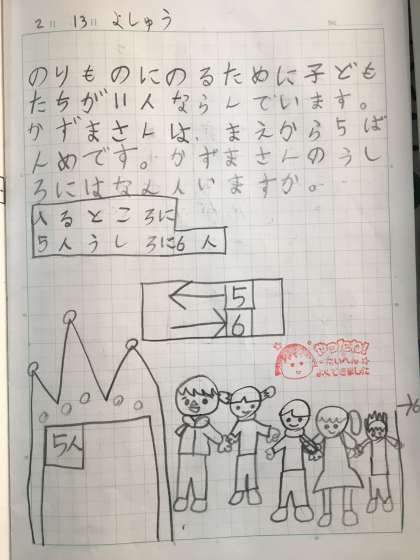 2 13 よしゅう
のりものにのるために子ども
たちが11人ならんでいます。
かずまさんは、まえから5ば
んめです。かずまさんのうし
ろにはなん人いますか。
入るところに
5人うしろに6人
← 5
→ 6
やったね!
たいへん
よくできました
5人
→6